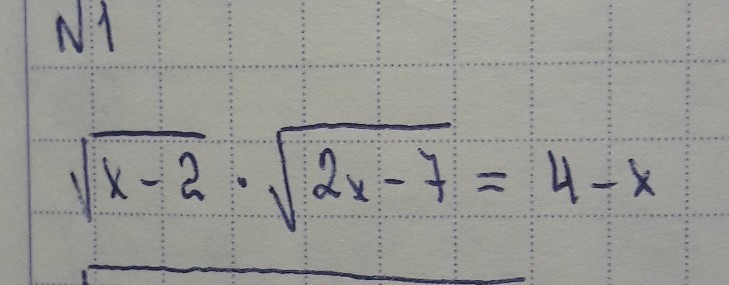 N1
√x-2 · √2x-7 = 4-x